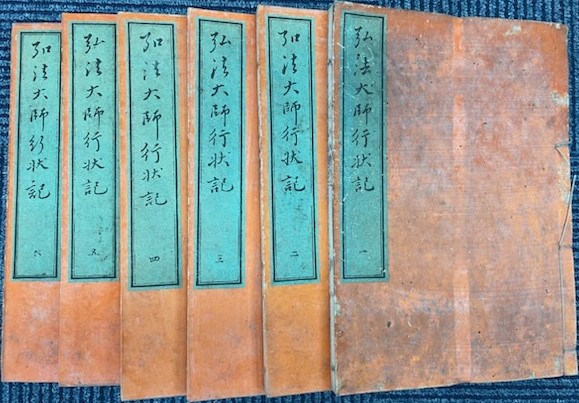 弘法大師行状記 一
弘法大師行状記 二
弘法大師行状記 三
弘法大師行状記 四
弘法大師行状記 五
弘法大師行状記 六